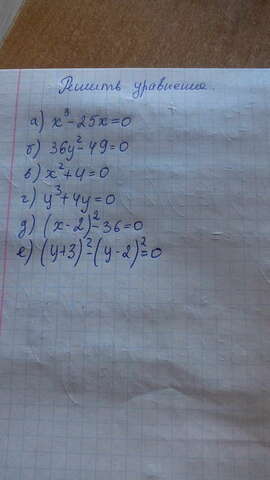 Решить уравнение.
а) x³-25x=0
б) 36y²-49=0
в) x²+4=0
г) y³+4y=0
д) (x-2)²-36=0
е) (y+3)²-(y-2)²=0